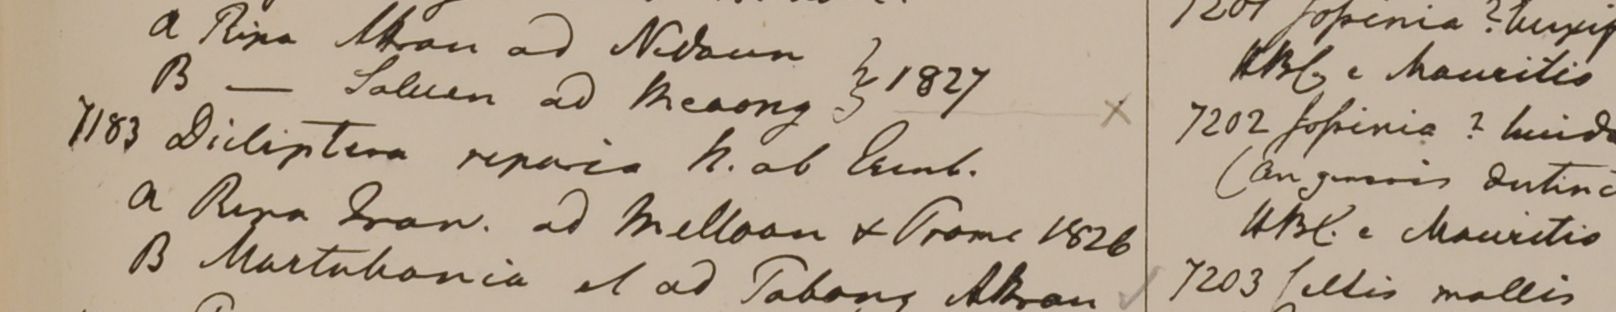 a Ripa Attran ad Nidaun
B — Saluen ad Meaong } 1827 x
7183 Dicliptera reparia h. ab Eund.
a Ripa Iran. ad Melloon & Prome 1826
B Martubania et ad Tabong Attran
7201 Josinia ?
HBC, e Mauritio
7202 Josinia ?
(an generis distinc
HBC. e Mauritio
7203 Celtis mollis